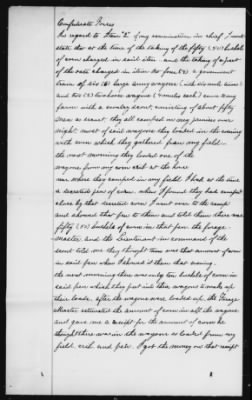 Confederate Forces
In regard to Item "2" of my examination in chief I must
state that at the time of the taking of the fifty (50) bushels
of corn charged in said item and the taking of a part
of the oats charged in item No four (4) a government
train of six (6) large army wagons (with six mule teams)
and two (2) two horse wagons (4 mules each) came my
farm with a cavalry escort, consisting of about fifty
men as escort, they all camped on my premises over
night. most of said wagons they loaded in the evening
with corn which they gathered from my field.
the next morning they loaded one of the
wagons from my corn crib at the house
near where they camped in my field. I had at the time
a quantity pen of corn. when I found they had camped
close by that I went over to the camp
and showed that pen to them and told them there was
fifty (50) bushels of corn in that pen the forage
master and the Lieutenant in command of the
escort told me they thought there was that amount of corn
in said pen when I showed it them that evening.
the next morning there was only ten bushels of corn in
said pen which they put into their wagons to make up
their loads. After the wagons were loaded up, the Forage
Master estimated the amount of corn in all the wagons
and gave me a receipt for the amount of corn he
thought there was in the wagons as loaded from my
field crib and pen. I got the money on that receipt